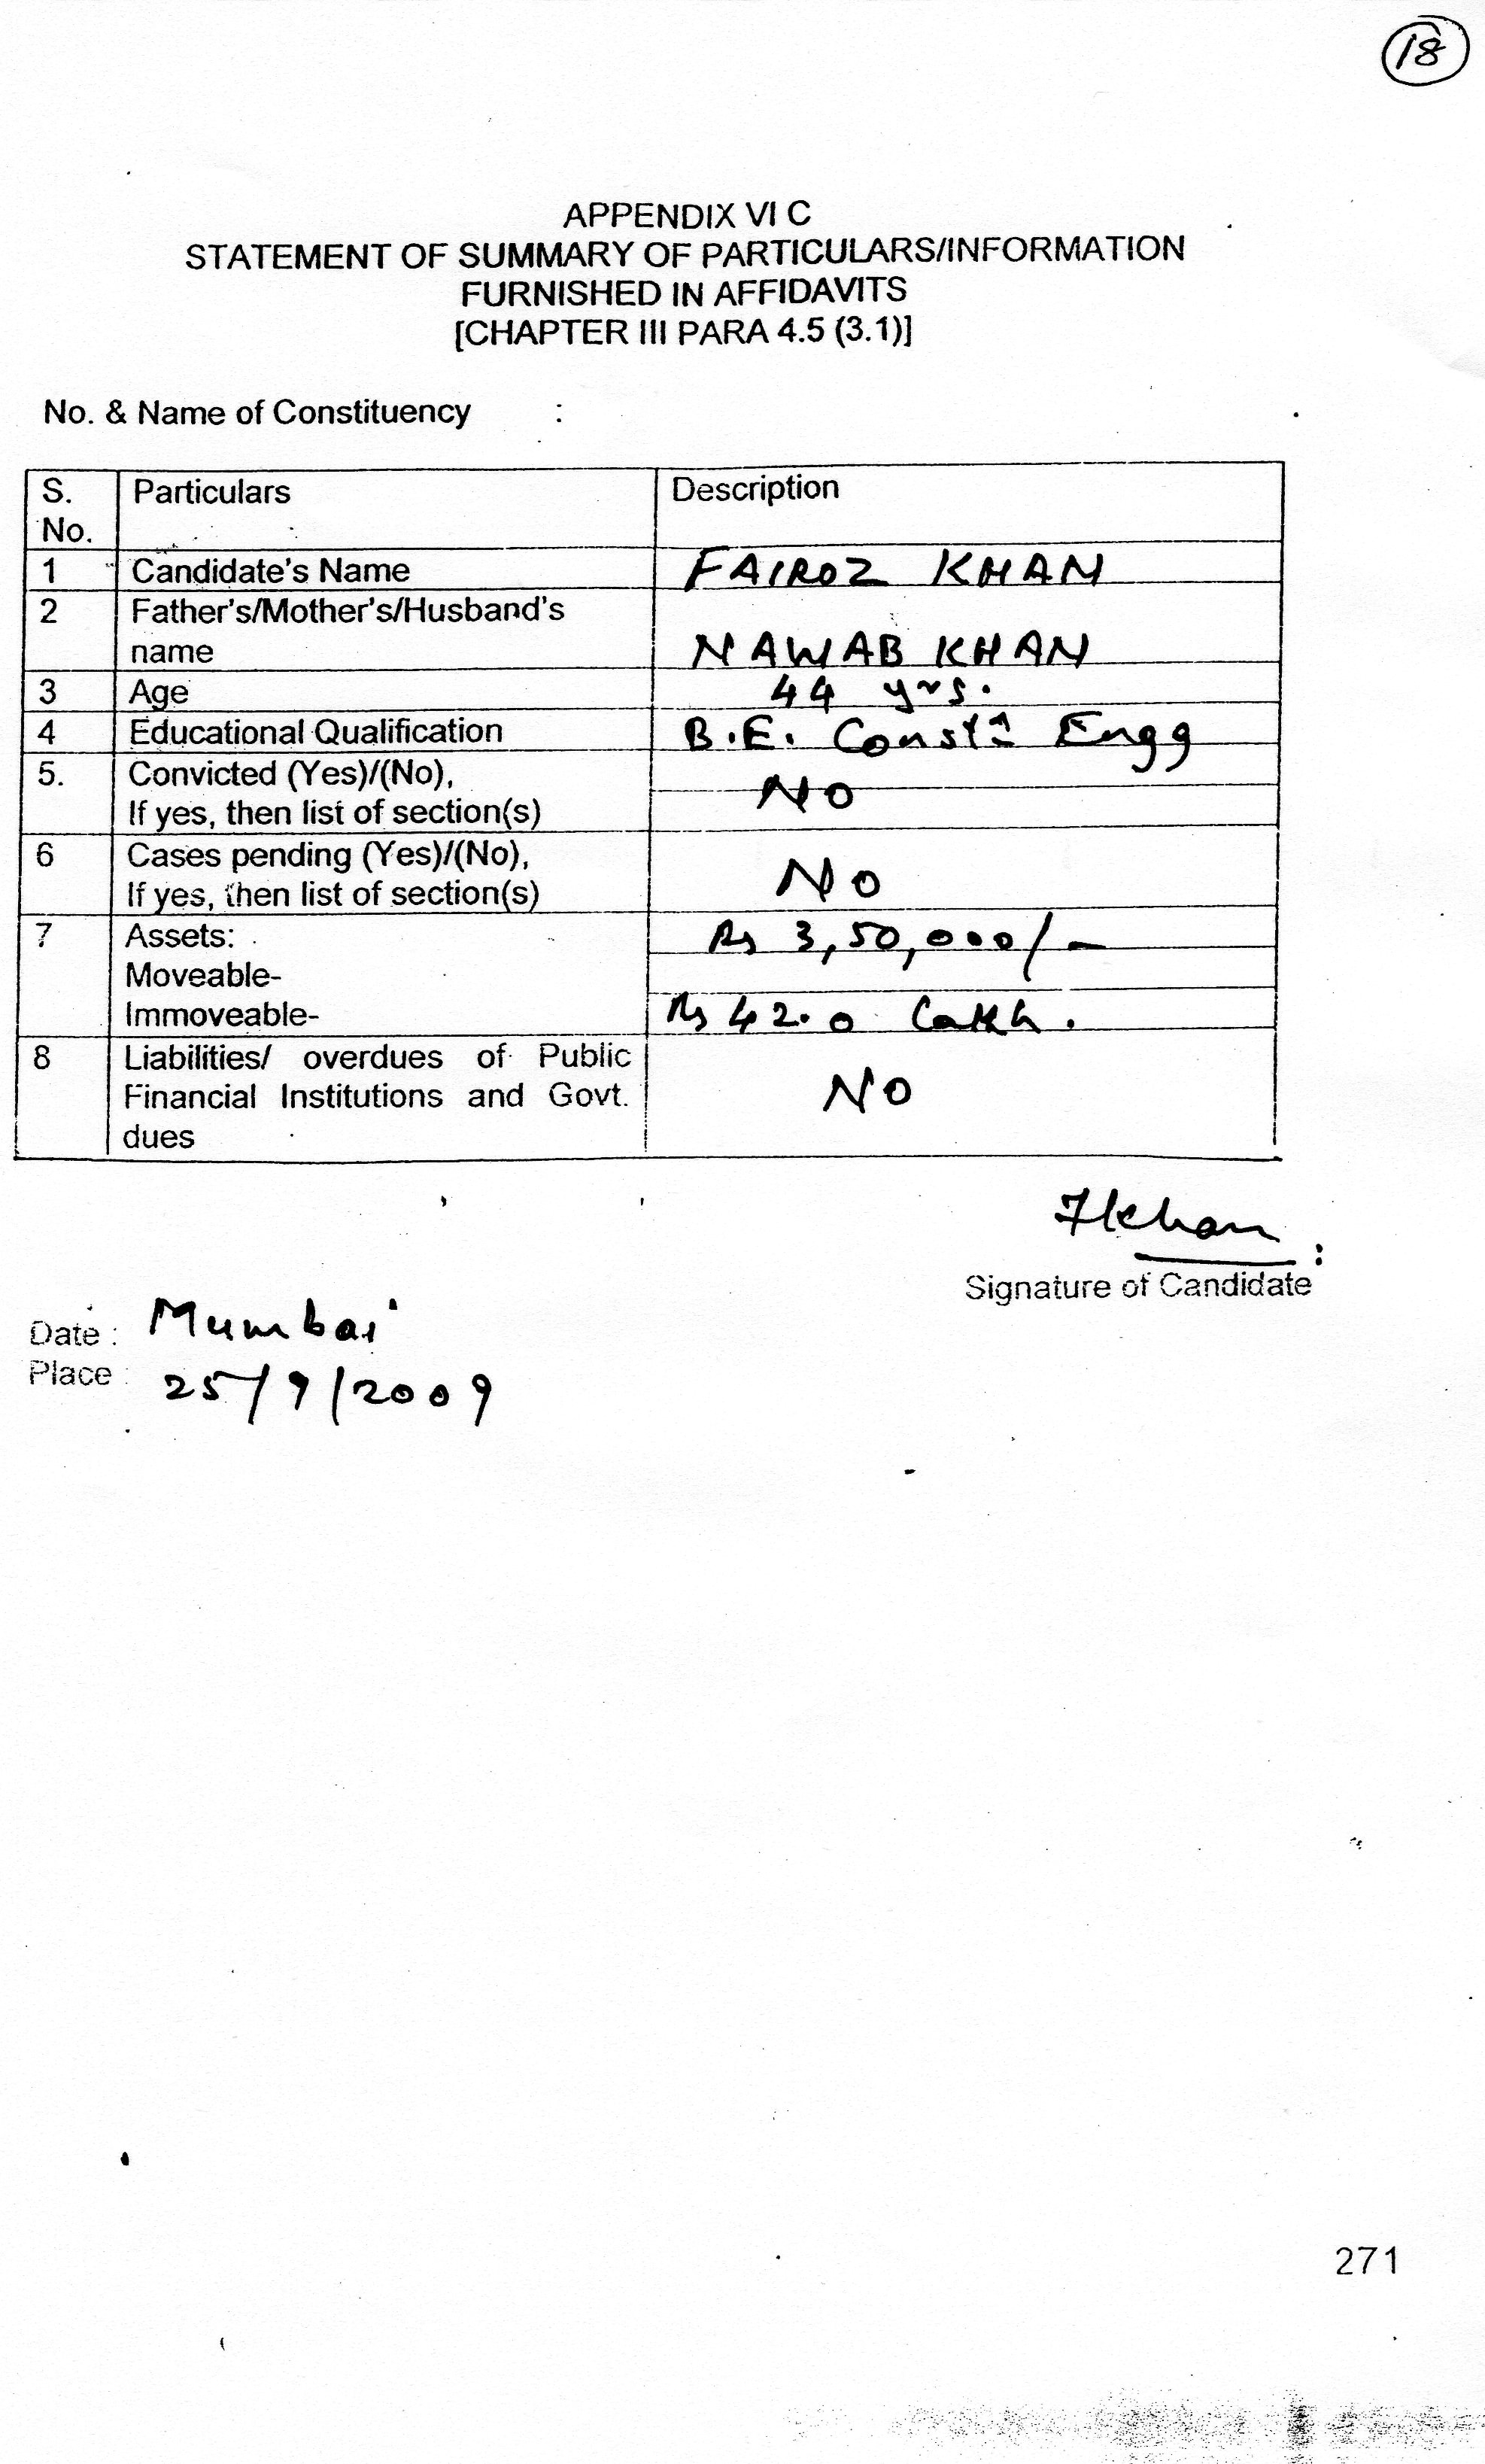 18
APPENDIX VI C
STATEMENT OF SUMMARY OF PARTICULARS/INFORMATION
FURNISHED IN AFFIDAVITS
[CHAPTER III PARA 4.5 (3.1)]
No. & Name of Constituency :
S. No. Particulars Description
1 Candidate's Name FAIROZ KHAN
2 Father's/Mother's/Husband's
name NAWAB KHAN
3 Age 44 yrs.
4 Educational Qualification B.E. Constn Engg
5. Convicted (Yes)/(No), NO
If yes, then list of section(s)
6 Cases pending (Yes)/(No),
If yes, then list of section(s) NO
7 Assets: Rs 3,50,000/-
Moveable-
Immoveable- Rs 42.0 Lakh.
8 Liabilities/ overdues of Public
Financial Institutions and Govt. NO
dues
Fkhan
Signature of Candidate
Date : Mumbai
Place : 25/9/2009
271